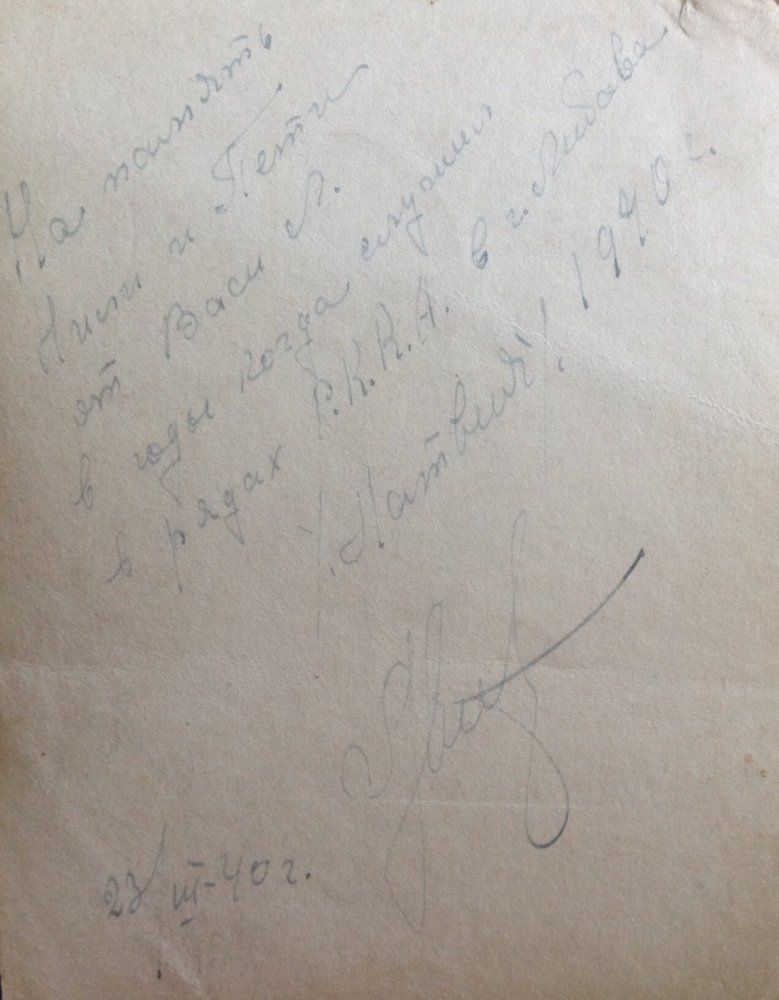 На память
Нины и Пети
от Васи Л.
в годы когда служил
в рядах Р.К.К.А. в г. Либава
/Латвия/. 1940 г.
23/III-40 г.